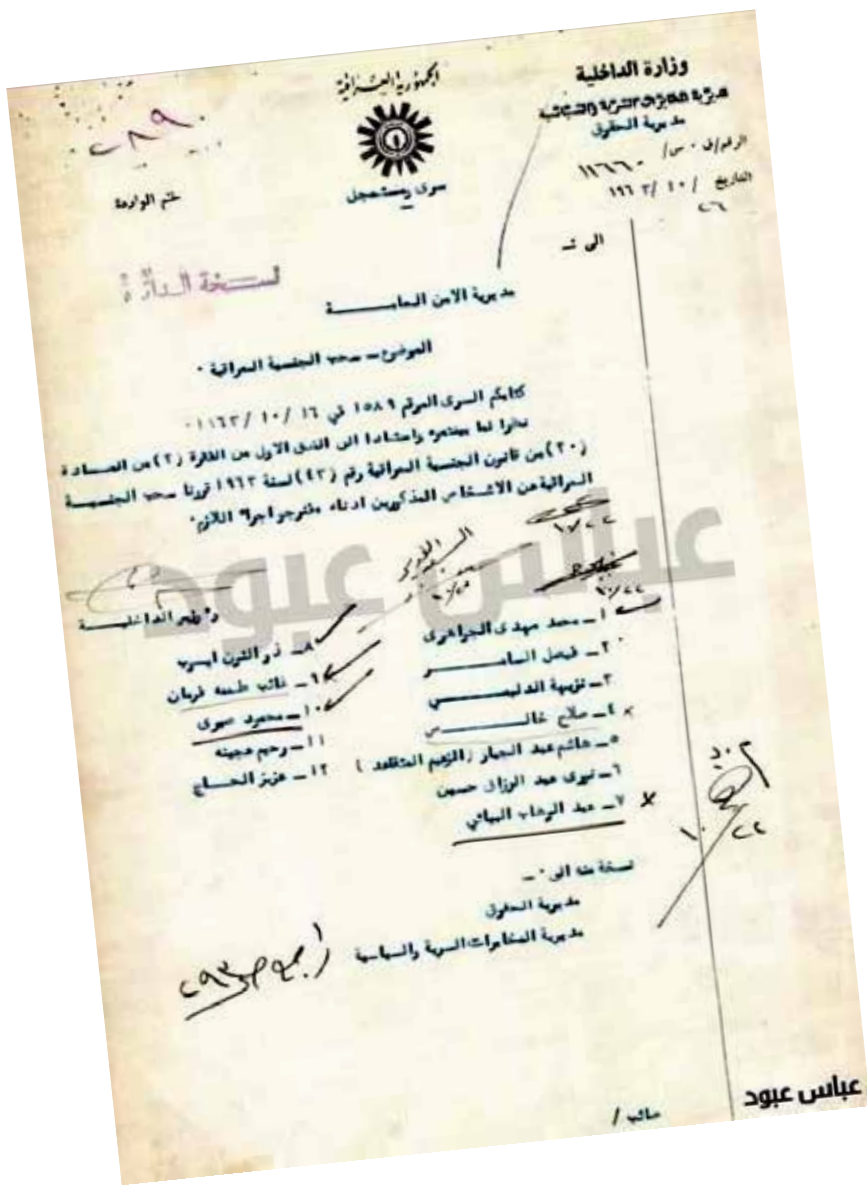 وزارة الداخلية
مديرية الحقوق
الرقم/ق ٠ س/ ١١٦٦٠
التاريخ / ١٠ / ١٩٦٣
٢٦
الجمهورية العراقية
سرى ومستعجل
٢٨٩
ختم الواردة
نسخة الدائرة
الى :ـ
مديرية الامن العامـــــة
الموضوع ــ سحب الجنسية العراقية ٠
كتابكم السرى المرقم ١٥٨٩ في ١٦ /١٠ /١٩٦٣ ٠
نظرا لما بينتموه واستنادا الى الشق الاول من الفقرة (٢) من المــادة
(٢٠) من قانون الجنسية العراقية رقم (٤٣) لسنة ١٩٦٣ قررنا سحب الجنسيـة
العراقية عن الاشخاص المذكورين ادناه فنرجو اجراء اللازم ٠
وزير الداخليـــة
١ــ محمد مهدى الجواهرى
٢ــ فيصل السامـــر
٣ــ نزيهة الدليمـــي
٤ــ صلاح خالـــــص
٥ــ هاشم عبد الجبار (الزعيم المتقاعد )
٦ــ نورى عبد الرزاق حسين
٧ــ عبد الوهاب البياتي
٨ــ ذو النون ايوب
٩ــ غائب طعمه فرمان
١٠ــ محمود صبرى
١١ــ رحيم عجينه
١٢ــ عزيز الحــاج
نسخة منه الى ٠ــ
مديرية الحقوق
مديرية المخابرات السرية والسياسية
عباس عبود
عباس عبود